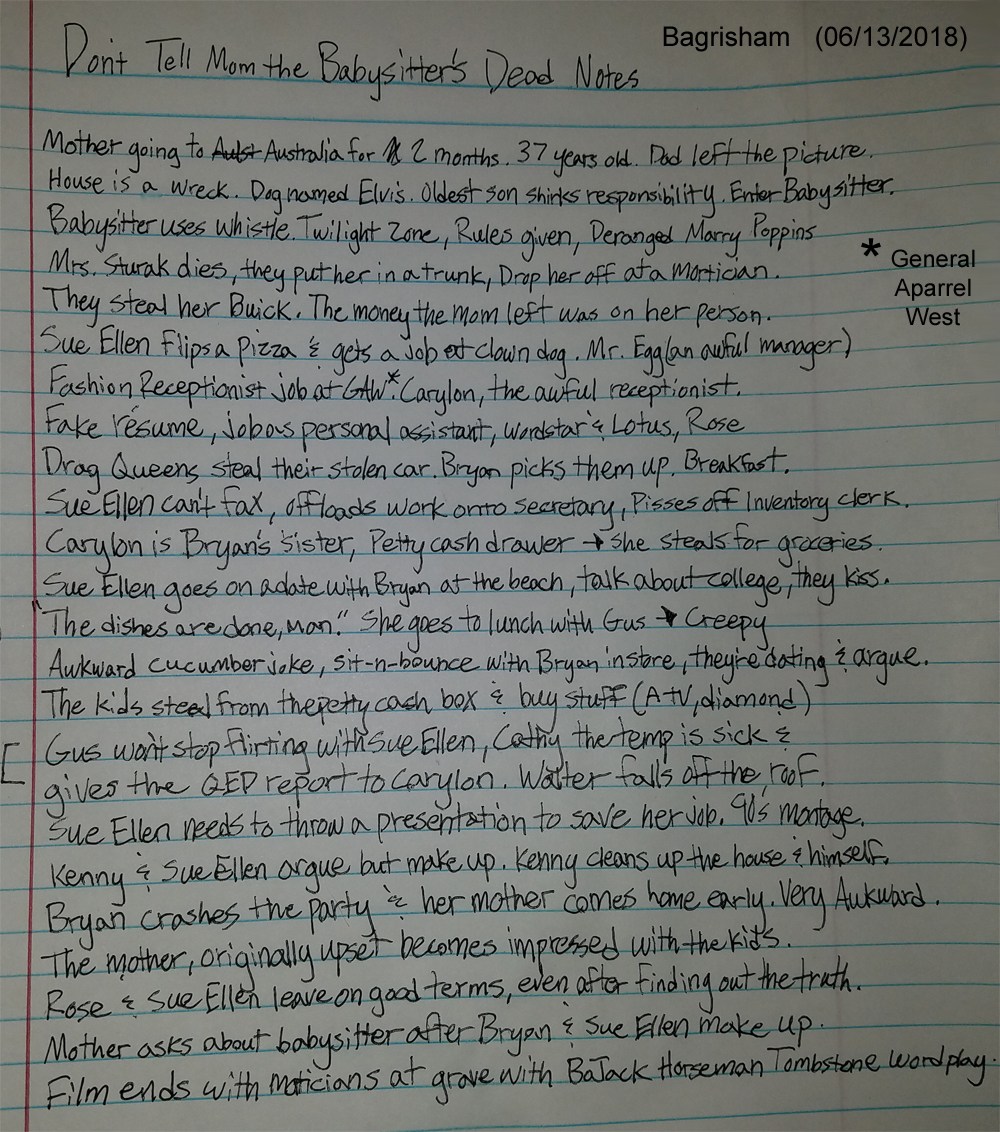 Bagrisham (06/13/2018)
Don't Tell Mom the Babysitter's Dead Notes
Mother going to Aust Australia for 2 months. 37 years old. Dad left the picture.
House is a wreck. Dog named Elvis. Oldest son shirks responsibility. Enter Babysitter.
Babysitter uses whistle. Twilight Zone, Rules given, Deranged Marry Poppins
* General
Aparrel
West
Mrs. Sturak dies, they put her in a trunk, Drop her off at a mortician.
They steal her Buick. The money the mom left was on her person.
Sue Ellen flips a pizza & gets a job at clown dog. Mr. Egg (an awful manager)
Fashion Receptionist job at GAW*. Carylon, the awful receptionist.
Fake résume, job as personal assistant, wordstar & Lotus, Rose
Drag Queens steal their stolen car. Bryan picks them up. Breakfast.
Sue Ellen can't fax, offloads work onto secretary, Pisses off Inventory clerk.
Carylon is Bryan's sister, Petty cash drawer → she steals for groceries.
Sue Ellen goes on a date with Bryan at the beach, talk about college, they kiss.
"The dishes are done, man." She goes to lunch with Gus → Creepy
Awkward cucumber joke, sit-n-bounce with Bryan in store, they're dating & argue.
The kids steal from the petty cash box & buy stuff (A TV, diamond)
[ Gus won't stop flirting with Sue Ellen, Cathy the temp is sick &
gives the QED report to Carylon. Walter falls off the roof.
Sue Ellen needs to throw a presentation to save her job. 90's montage.
Kenny & Sue Ellen argue but make up. Kenny cleans up the house & himself.
Bryan crashes the party & her mother comes home early. Very Awkward.
The mother, originally upset becomes impressed with the kids.
Rose & Sue Ellen leave on good terms, even after finding out the truth.
Mother asks about babysitter after Bryan & Sue Ellen make up.
Film ends with moticians at grave with BoJack Horseman Tombstone wordplay.